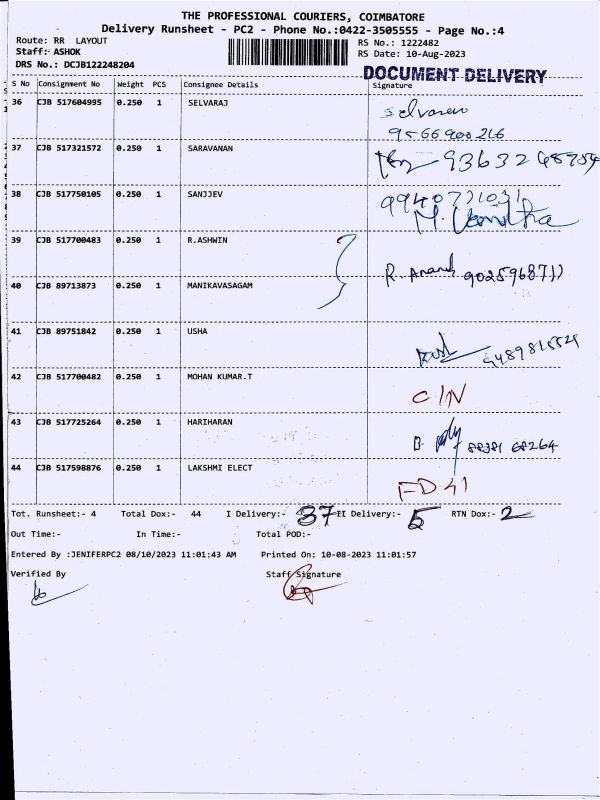 THE PROFESSIONAL COURIERS, COIMBATORE
Delivery Runsheet - PC2 - Phone No.:0422-3505555 - Page No.:4
Route: RR LAYOUT RS No.: 1222482
Staff:- ASHOK RS Date: 10-Aug-2023
DRS No.: DCJB122248204
DOCUMENT DELIVERY
S No Consignment No Weight PCS Consignee Details Signature
36 CJB 517604995 0.250 1 SELVARAJ
9566900216
37 CJB 517321572 0.250 1 SARAVANAN
38 CJB 517750105 0.250 1 SANJJEV 9940771031
39 CJB 517700483 0.250 1 R.ASHWIN
R. Anand
40 CJB 89713873 0.250 1 MANIKAVASAGAM
41 CJB 89751842 0.250 1 USHA
42 CJB 517700482 0.250 1 MOHAN KUMAR.T C/N
43 CJB 517725264 0.250 1 HARIHARAN 88381 68264
44 CJB 517598876 0.250 1 LAKSHMI ELECT
Tot. Runsheet:- 4 Total Dox:- 44 I Delivery:- 37 II Delivery:- 5 RTN Dox:- 2
Out Time:- In Time:- Total POD:-
Entered By :JENIFERPC2 08/10/2023 11:01:43 AM Printed On: 10-08-2023 11:01:57
Verified By Staff Signature